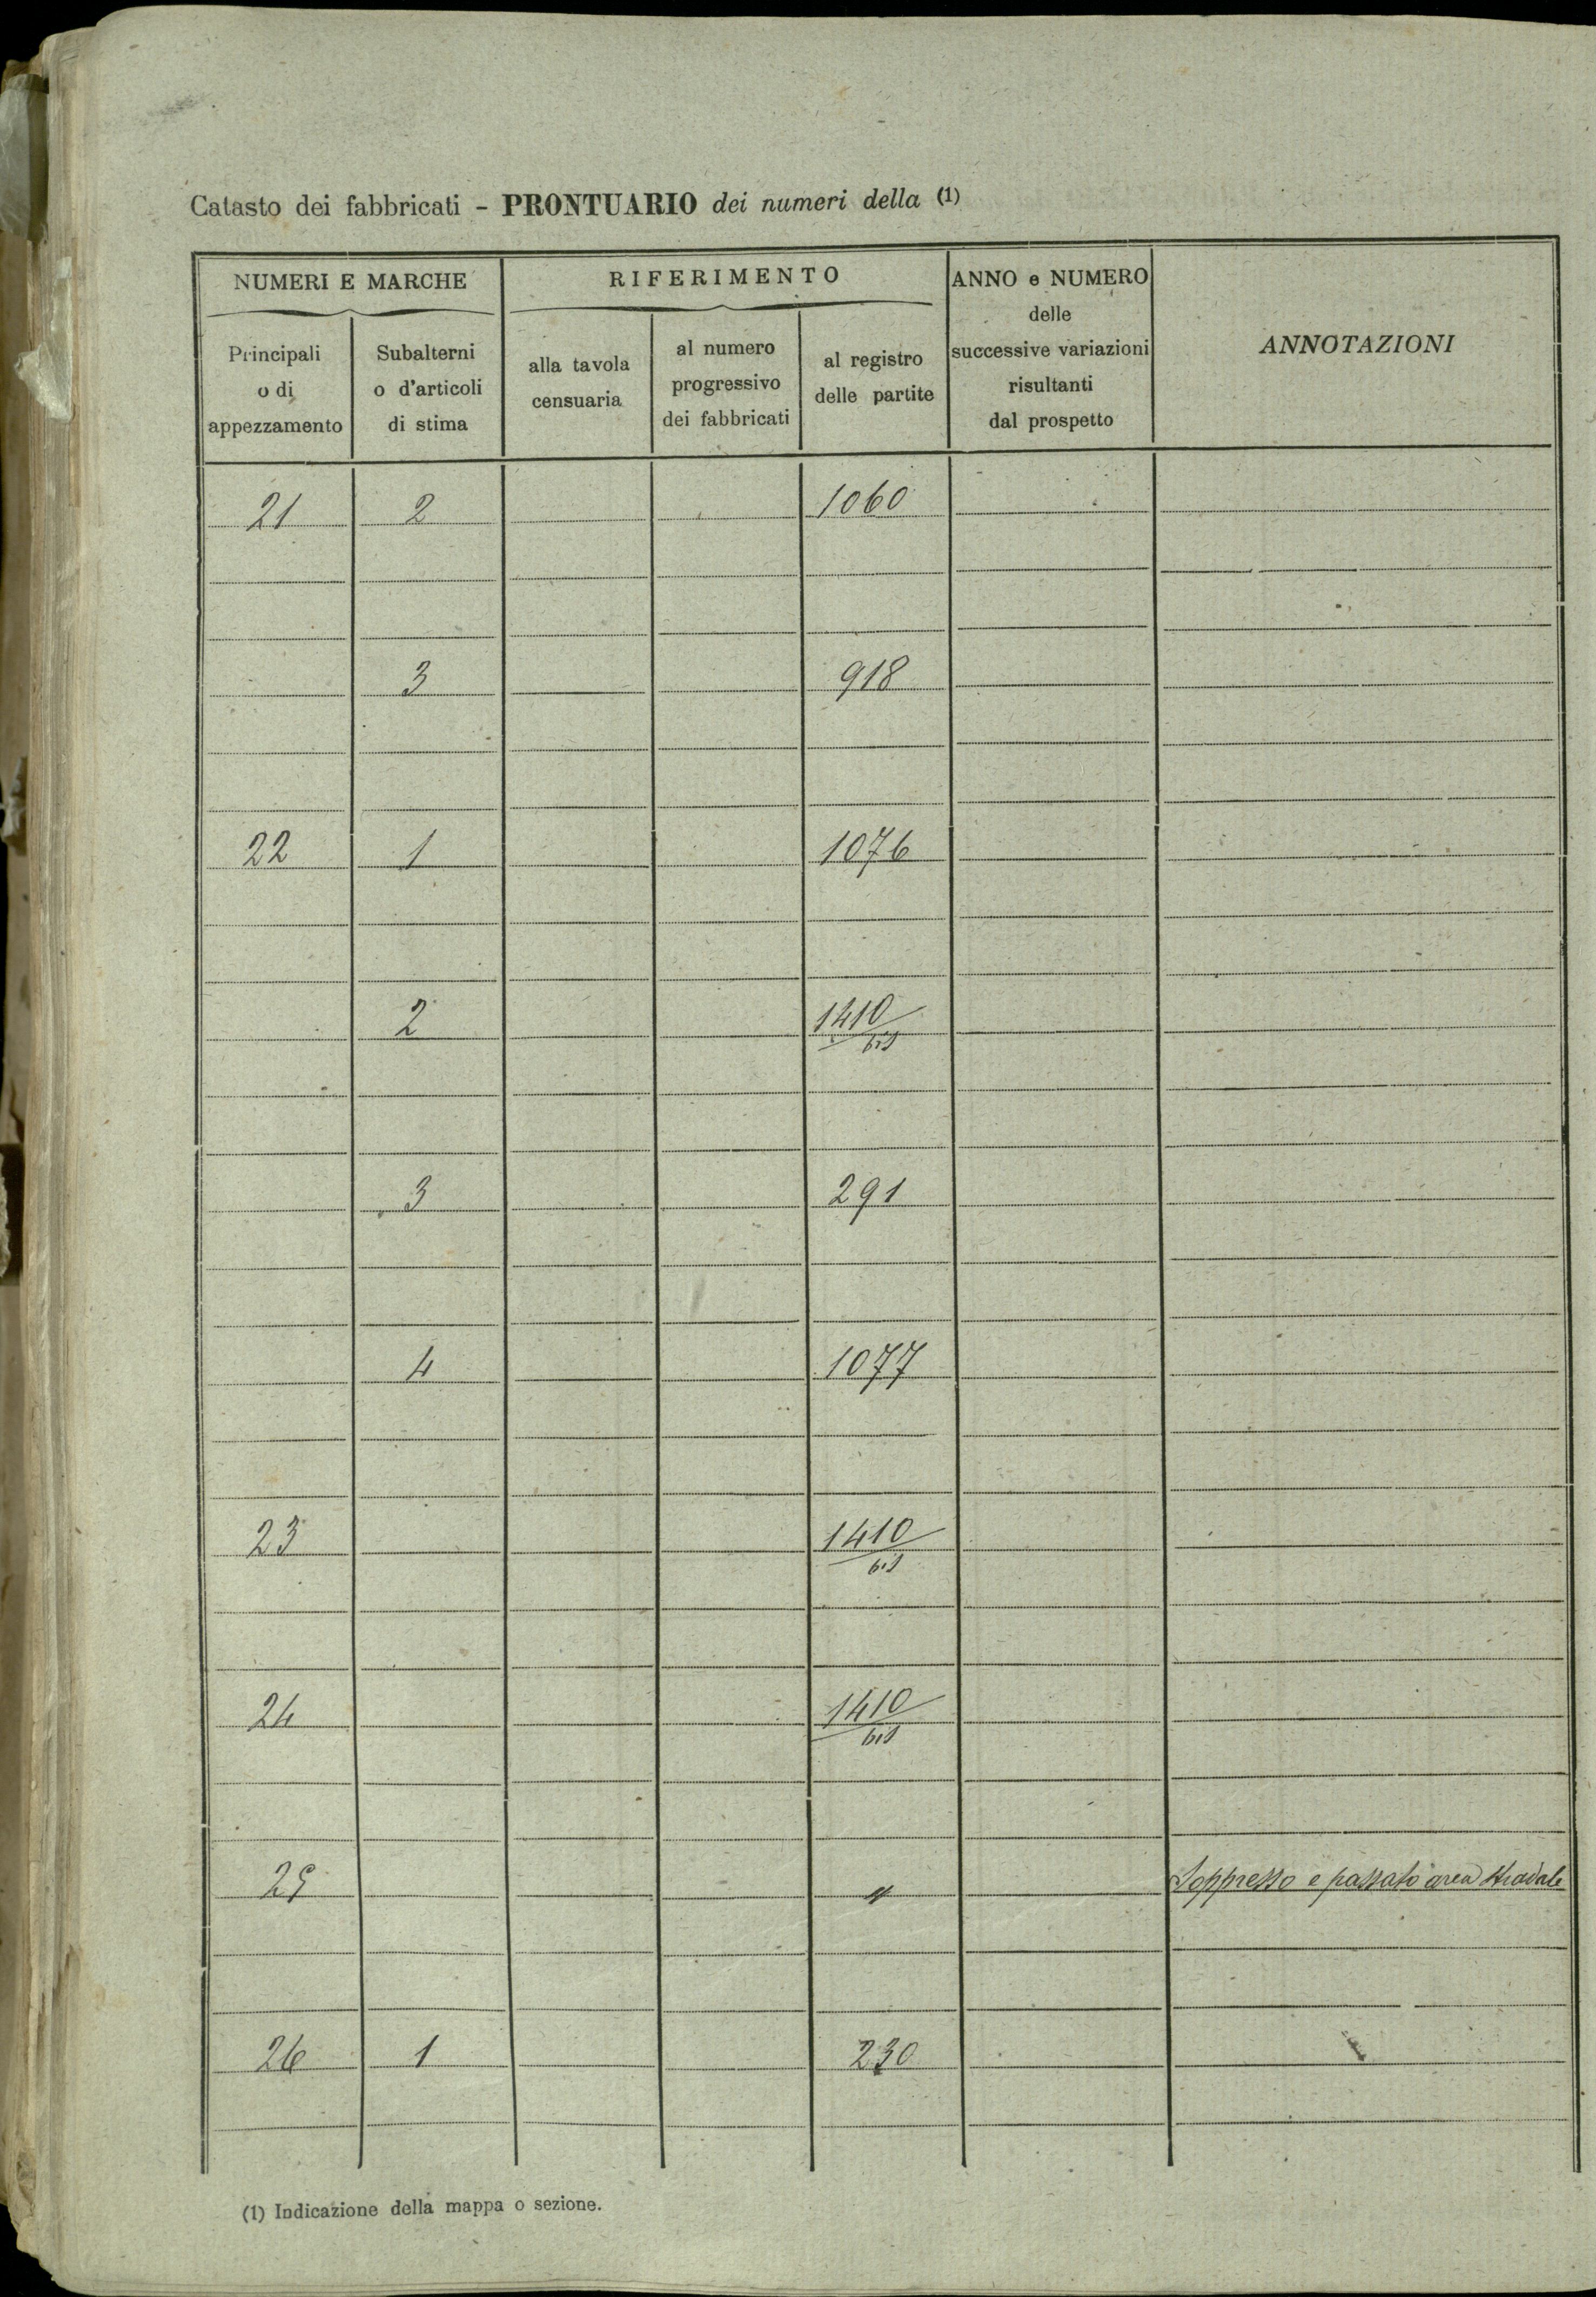 Catasto dei fabbricati - PRONTUARIO dei numeri della (1)
NUMERI E MARCHE
RIFERIMENTO
ANNO e NUMERO
delle
successive variazioni
risultanti
dal prospetto
ANNOTAZIONI
Principali
o di
appezzamento
Subalterni
o d'articoli
di stima
alla tavola
censuaria
al numero
progressivo
dei fabbricati
al registro
delle partite
21 2 1060
3 918
22 1 1076
2 1410
bis
3 291
4 1077
23 1410
bis
24 1410
bis
25 " Soppresso e passato area stradale
26 1 230
(1) Indicazione della mappa o sezione.